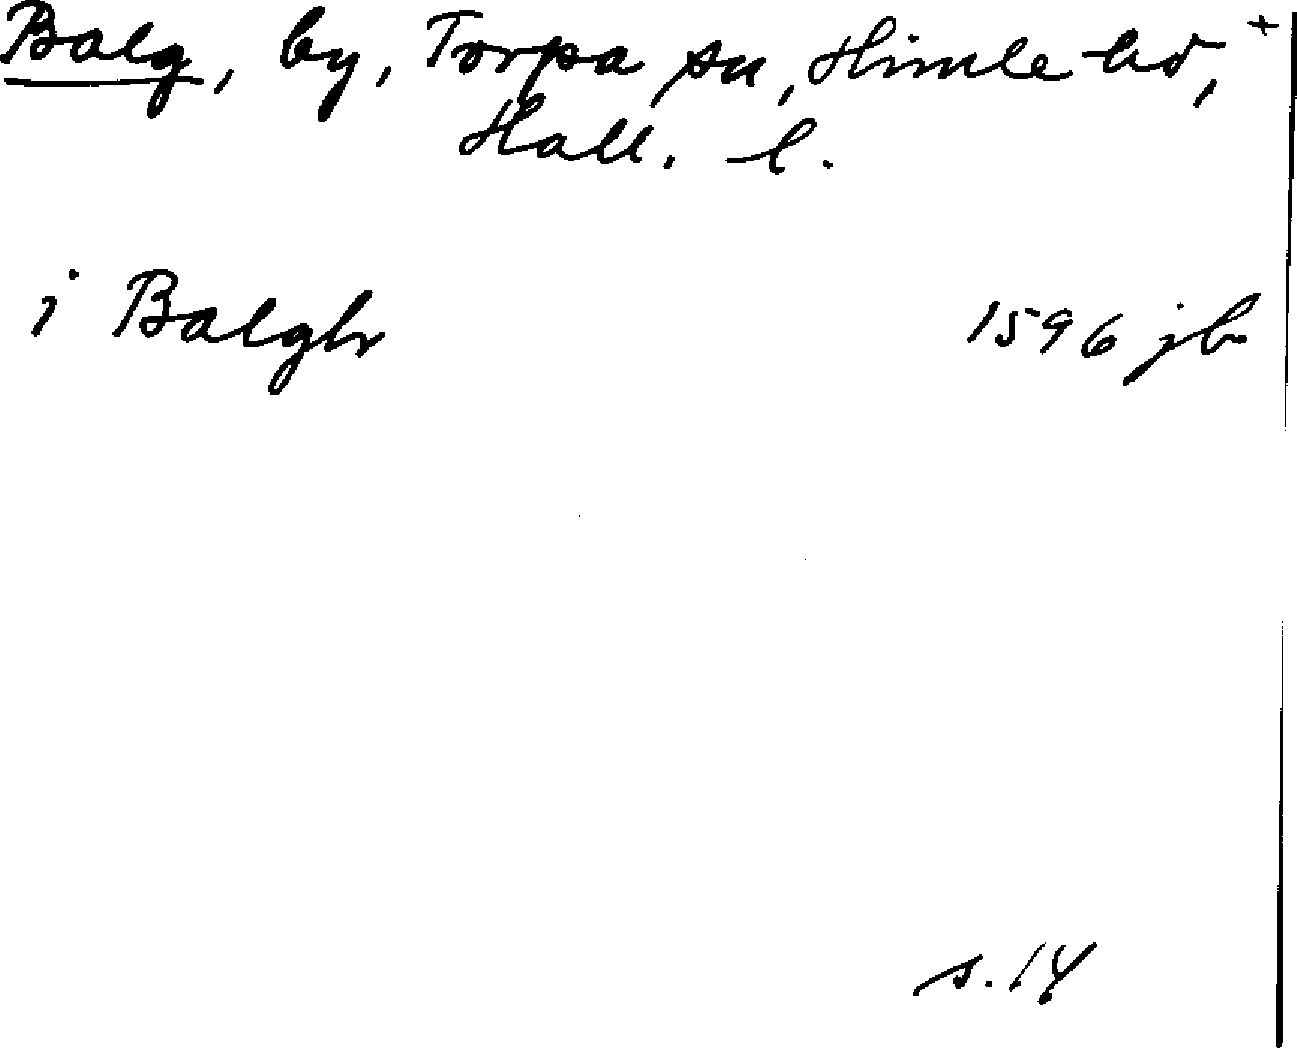 Balg, by, Torpa sn, Himle hd, +
Hall. l.
i Balgh 1596 jb
s. 14